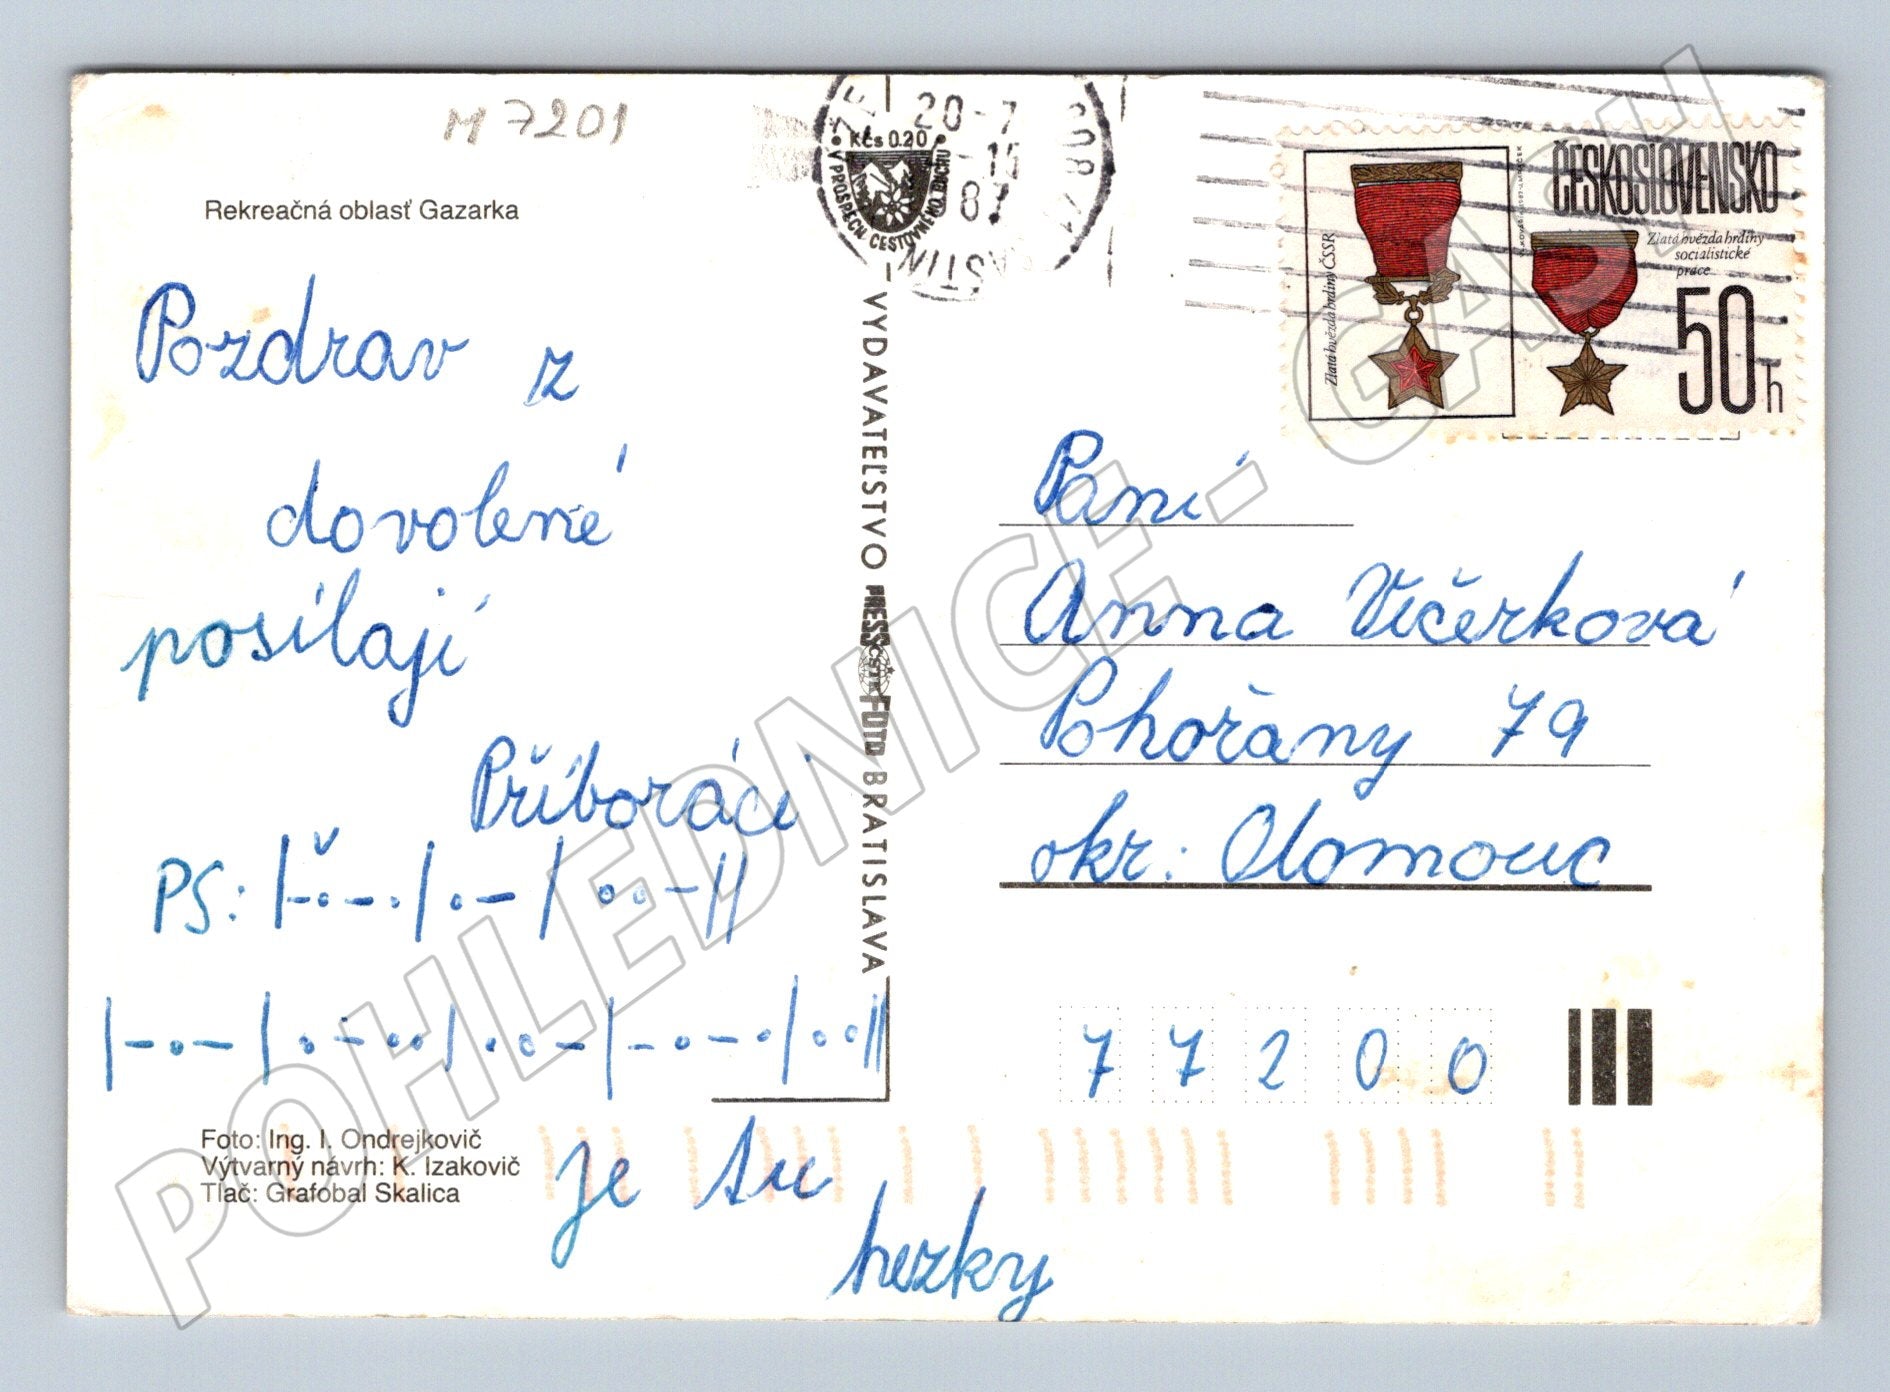 M 7201
Rekreačná oblasť Gazarka
Pozdrav z
dovolené
posílají
Příboráci
PS: |-.-.|.-|..-||
|-.-|.-..|..-|-.-.|..||
je tu
hezky
Foto: Ing. I. Ondrejkovič
Výtvarný návrh: K. Izakovič
Tlač: Grafobal Skalica
VYDAVATEĽSTVO PRESSFOTO BRATISLAVA
ČSTK
Kčs 0.20
V PROSPECH CESTOVNÉHO RUCHU
20-7
-15
87
908 71
ČESKOSLOVENSKO
Zlatá hvězda hrdiny ČSSR
Zlatá hvězda hrdiny
socialistické
práce
50h
Paní
Anna Večerková
Pohořany 79
okr: Olomouc
77200
POHLEDNICE - GASH